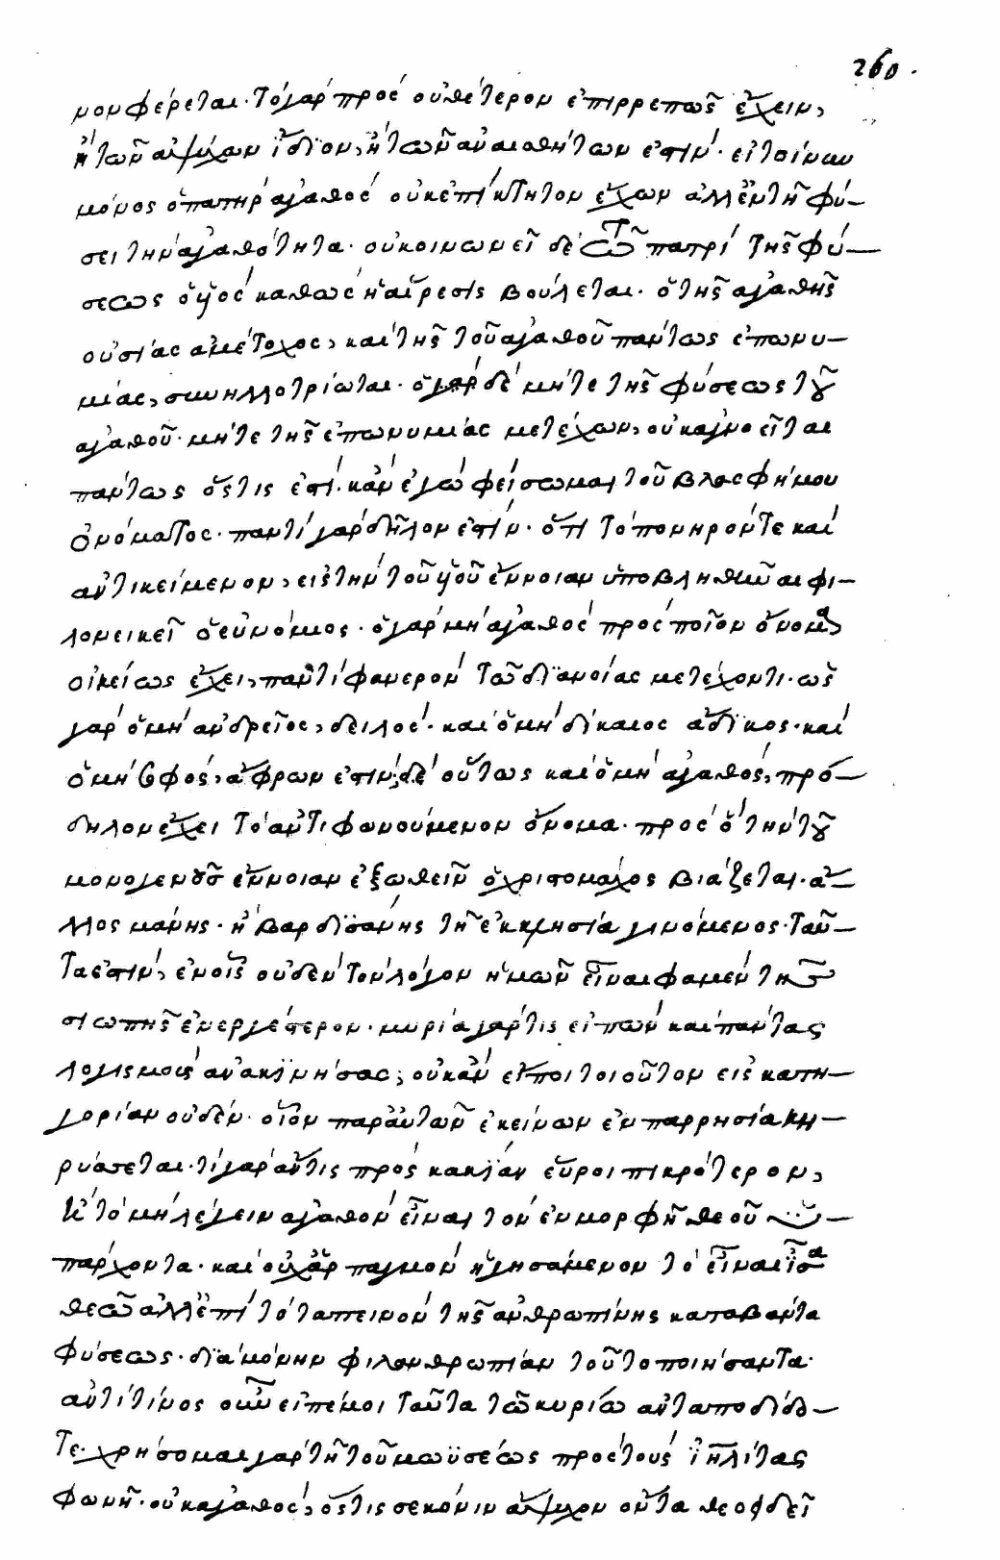 260.
μον φέρεται· τὸ γὰρ πρὸς οὐθέτερον ἐπιρρεπῶς ἔχειν,
ἢ τῶν ἀψύχων ἴδιον, ἢ τῶν ἀναισθήτων ἐστίν· εἰ τοίνυν
μόνος ὁ πατὴρ ἀγαθὸς οὐκ ἐπίκτητον ἔχων ἀλλ' ἐν τῇ φύ-
σει τὴν ἀγαθότητα· οὐ κοινωνεῖ δὲ τῶ πατρὶ τῆς φύ-
σεως ὁ υἱὸς καθὼς ἡ αἵρεσις βούλεται· ὁ τῆς ἀγαθῆς
οὐσίας ἀμέτοχος, καὶ τῆς τοῦ ἀγαθοῦ πάντως ἐπωνυ-
μίας, συνηλλοτρίωται· ὁ γὰρ δὲ μήτε τῆς φύσεως τοῦ
ἀγαθοῦ· μήτε τῆς ἐπωνυμίας μετέχων, οὐκ ἀγνοεῖται
πάντως ὅστις ἐστὶ· κἂν ἐγὼ φείσωμαι τοῦ βλασφήμου
ὀνόματος· παντὶ γὰρ δῆλον ἐστὶν· ὅτι τὸ πονηρόν τε καὶ
ἀντικείμενον, εἰς τὴν τοῦ υἱοῦ ἔννοιαν ὑποβληθῆναι φι-
λονεικεῖ ὁ εὐνόμιος· ὁ γὰρ μὴ ἀγαθὸς πρὸς ποῖον ὄνομα
οἰκείως ἔχει, παντὶ φανερὸν τῶ διανοίας μετέχοντι· ὡς
γὰρ ὁ μὴ ἀνδρεῖος, δειλός· καὶ ὁ μὴ δίκαιος ἄδικος· καὶ
ὁ μὴ σοφός, ἄφρων ἐστίν, δὲ οὕτως καὶ ὁ μὴ ἀγαθός, πρό-
δηλον ἔχει τὸ ἀντιφωνούμενον ὄνομα· πρὸς ὃ τὴν τοῦ
μονογενοῦς ἔννοιαν ἐξωθεῖν ὁ χριστομάχος βιάζεται· ἄ-
λλος μάνης· ἢ βαρδισάνης τῇ ἐκκλησία γινόμενος· ταῦ-
τα ἐστίν, ἐν οἷς οὐδὲν τὸν λόγον ἡμῶν εἶναι φαμὲν τῆς
σιωπῆς ἐνεργέστερον· μυρία γάρ τις εἰπὼν καὶ πάντας
λογισμοὺς ἀνακινήσας, οὐκ ἂν εἴποι τοιοῦτον εἰς κατη-
γορίαν οὐδέν· οἷον παρ' αὐτῶν ἐκείνων ἐν παρρησία κη-
ρύσσεται· τί γὰρ ἄν τις πρὸς κακίαν εὕροι πικρότερον,
ἢ τὸ μὴ λέγειν ἀγαθὸν εἶναι τὸν ἐν μορφῇ θεοῦ ὑ-
πάρχοντα· καὶ οὐχ ἁρπαγμὸν ἡγησάμενον τὸ εἶναι ἴσα
θεῶ ἀλλ' ἐπὶ τὸ ταπεινὸν τῆς ἀνθρωπίνης καταβάντα
φύσεως· διὰ μόνην φιλανθρωπίαν τοῦτο ποιήσαντα·
ἀντὶ τίνος οὖν εἰπέ μοι ταῦτα τῶ κυρίω ἀνταποδίδο-
τε· χρήσομαι γὰρ τῇ τοῦ μωϋσέως πρὸς τοὺς ἰηλίτας
φωνῇ· οὐκ ἀγαθός, ὅστις σε κόνιν ἄψυχον ὄντα θεοειδεῖ